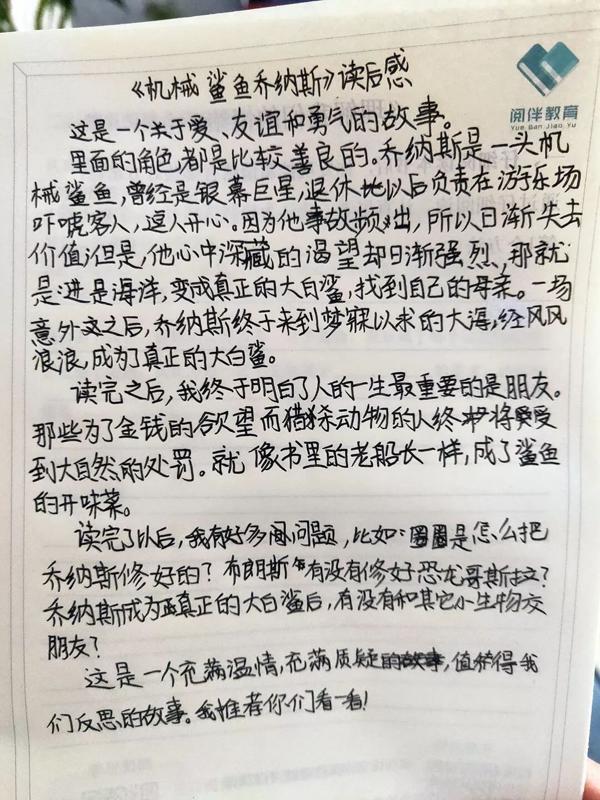 阅伴教育
Yue Ban Jiao Yu
《机械鲨鱼乔纳斯》读后感
这是一个关于爱、友谊和勇气的故事。
里面的角色都是比较善良的。乔纳斯是一头机
械鲨鱼,曾经是银幕巨星,退休地以后负责在游乐场
吓唬客人,逗人开心。因为他事故频出,所以日渐失去
价值;但是,他心中深藏的渴望却日渐强烈,那就
是:进是海洋,变成真正的大白鲨,找到自己的母亲。一场
意外之后,乔纳斯终于来到梦寐以求的大海,经风风
浪浪,成为了真正的大白鲨。
读完之后,我终于明白了人的一生最重要的是朋友。
那些为了金钱的欲望而猎杀动物的人终将受
到大自然的处罚。就像书里的老船长一样,成了鲨鱼
的开味菜。
读完了以后,我有好多问题,比如:圈圈是怎么把
乔纳斯修好的?布朗斯有没有修好恐龙哥斯拉?
乔纳斯成为真正的大白鲨后,有没有和其它小生物交
朋友?
这是一个充满温情,充满质疑,值得我
们反思的故事。我推荐你们看一看!